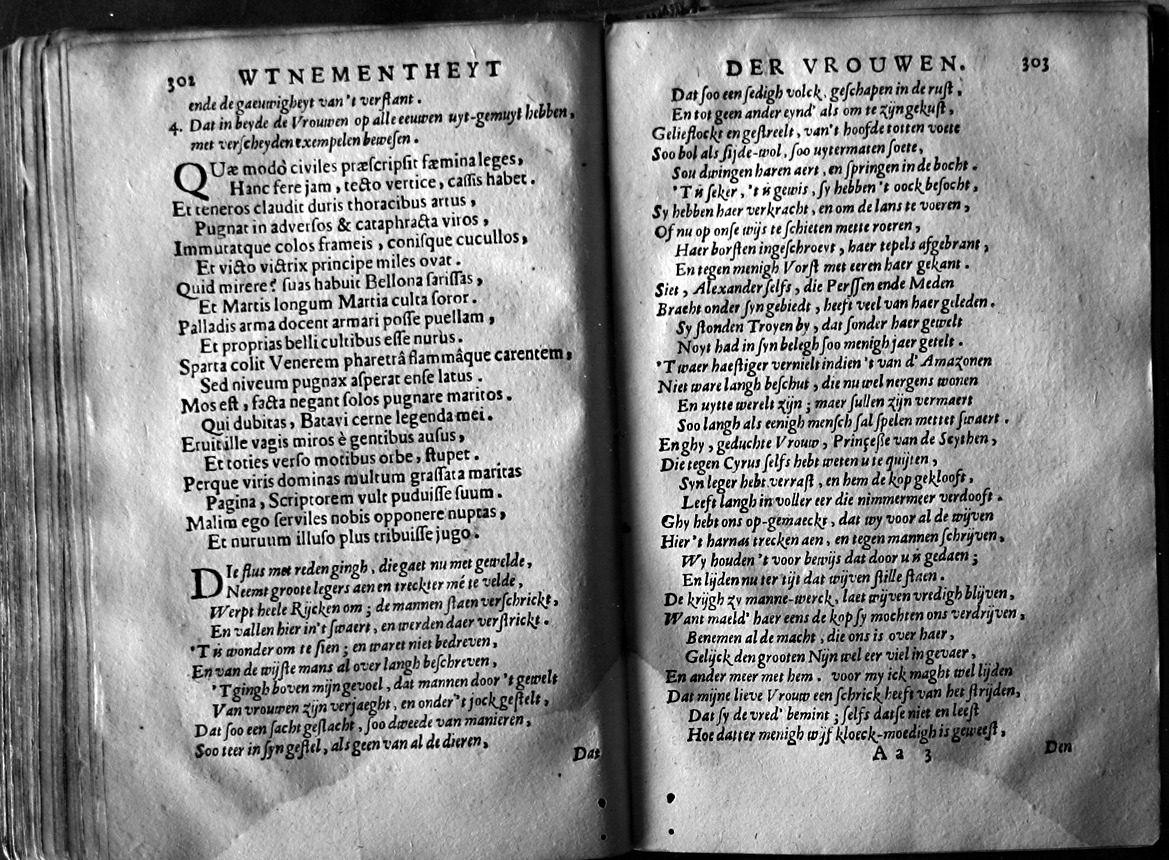 302 WTNEMENTHEYT
ende de gaeuwigheyt van 't verstant.
4. Dat in beyde de Vrouwen op alle eeuwen uyt-gemuyt hebben,
met verscheyden exempelen bewesen.
QUæ modò civiles præscripsit fæmina leges,
Hanc fere jam, tecto vertice, cassis habet.
Et teneros claudit duris thoracibus artus,
Pugnat in adversos & cataphracta viros,
Immutatque colos frameis, conisque cucullos,
Et victo victrix principe miles ovat.
Quid mirere? suas habuit Bellona sarissas,
Et Martis longum Martia culta soror.
Palladis arma docent armari posse puellam,
Et proprias belli cultibus esse nurus.
Sparta colit Venerem pharetrâ flammâque carentem,
Sed niveum pugnax asperat ense latus.
Mos est, facta negant solos pugnare maritos.
Qui dubitas, Batavi cerne legenda mei.
Eruit ille vagis miros è gentibus ausus,
Et toties verso motibus orbe, stupet.
Perque viris dominas multum grassata maritas
Pagina, Scriptorem vult puduisse suum.
Malim ego serviles nobis opponere nuptas,
Et nuruum illuso plus tribuisse jugo.
DIe flus met reden gingh, die gaet nu met gewelde,
Neemt groote legers aen en treckter mé te velde,
Werpt heele Rijcken om; de mannen staen verschrickt,
En vallen hier in 't swaert, en werden daer verstrickt.
'T is wonder om te sien; en waret niet bedreven,
En van de wijste mans al over langh beschreven,
'T gingh boven mijn gevoel, dat mannen door 't gewelt
Van vrouwen zijn verjaeght, en onder 't jock gestelt,
Dat soo een sacht geslacht, soo dweede van manieren,
Soo teer in syn gestel, als geen van al de dieren,
Dat
DER VROUWEN. 303
Dat soo een sedigh volck, geschapen in de rust,
En tot geen ander eynd' als om te zijn gekust,
Geliestockt en gestreelt, van 't hoofde totten voete
Soo bol als sijde-wol, soo uytermaten soete,
Sou dwingen haren aert, en springen in de bocht.
'T is seker, 't is gewis, sy hebben 't oock besocht,
Sy hebben haer verkracht, en om de lans te voeren,
Of nu op onse wijs te schieten mette roeren,
Haer borsten ingeschroeyt, haer tepels afgebrant,
En tegen menigh Vorst met eeren haer gekant.
Siet, Alexander selfs, die Perssen ende Meden
Bracht onder syn gebiedt, heeft veel van haer geleden.
Sy stonden Troyen by, dat sonder haer gewelt
Noyt had in syn belegh soo menigh jaer getelt.
'T waer haestiger vernielt indien 't van d' Amazonen
Niet ware langh beschut, die nu wel nergens wonen
En uytte werelt zijn; maer sullen zijn vermaert
Soo langh als eenigh mensch sal spelen mettet swaert.
En ghy, geduchte Vrouw, Prinçesse van de Scythen,
Die tegen Cyrus selfs hebt weten u te quijten,
Syn leger hebt verrast, en hem de kop geklooft,
Leeft langh in voller eer die nimmermeer verdooft.
Ghy hebt ons op-gemaeckt, dat wy voor al de wijven
Hier 't harnas trecken aen, en tegen mannen schrijven,
Wy houden 't voor bewijs dat door u is gedaen;
En lijden nu ter tijt dat wijven stille staen.
De krijgh zy manne-werck, laet wijven vredigh blijven,
Want maeld' haer eens de kop sy mochten ons verdrijven,
Benemen al de macht, die ons is over haer,
Gelijck den grooten Nijn wel eer viel in gevaer,
En ander meer met hem. voor my ick maght wel lijden
Dat mijne lieve Vrouw een schrick heeft van het strijden,
Dat sy de vred' bemint; selfs datse niet en leest
Hoe datter menigh wijf kloeck-moedigh is geweest,
Aa 3 Den